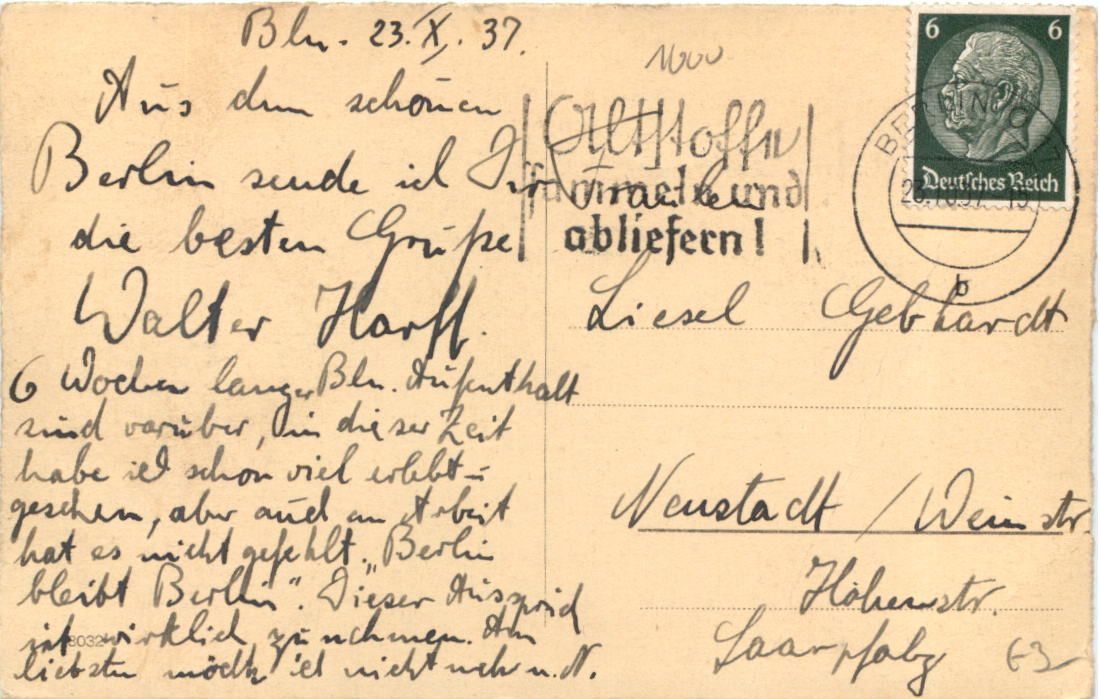 Bln. 23.X.37.
Aus dem schönen
Berlin sende ich Dir
die besten Grüße
Walter Harff.
6 Wochen langer Bln. Aufenthalt
sind vorüber, in dieser Zeit
habe ich schon viel erlebt u
gesehen, aber auch an Arbeit
hat es nicht gefehlt. „Berlin
bleibt Berlin“. Dieser Ausspruch
ist wirklich zu nehmen. Am
liebsten möcht ich nicht mehr n. N.
8032
1000
Altstoffe
sammeln und
abliefern!
6 6
Deutsches Reich
BERLIN
23.10.37
b
Fräulein
Liesel Gebhardt
Neustadt / Weinstr.
Höhenstr.
Saarpfalz
63